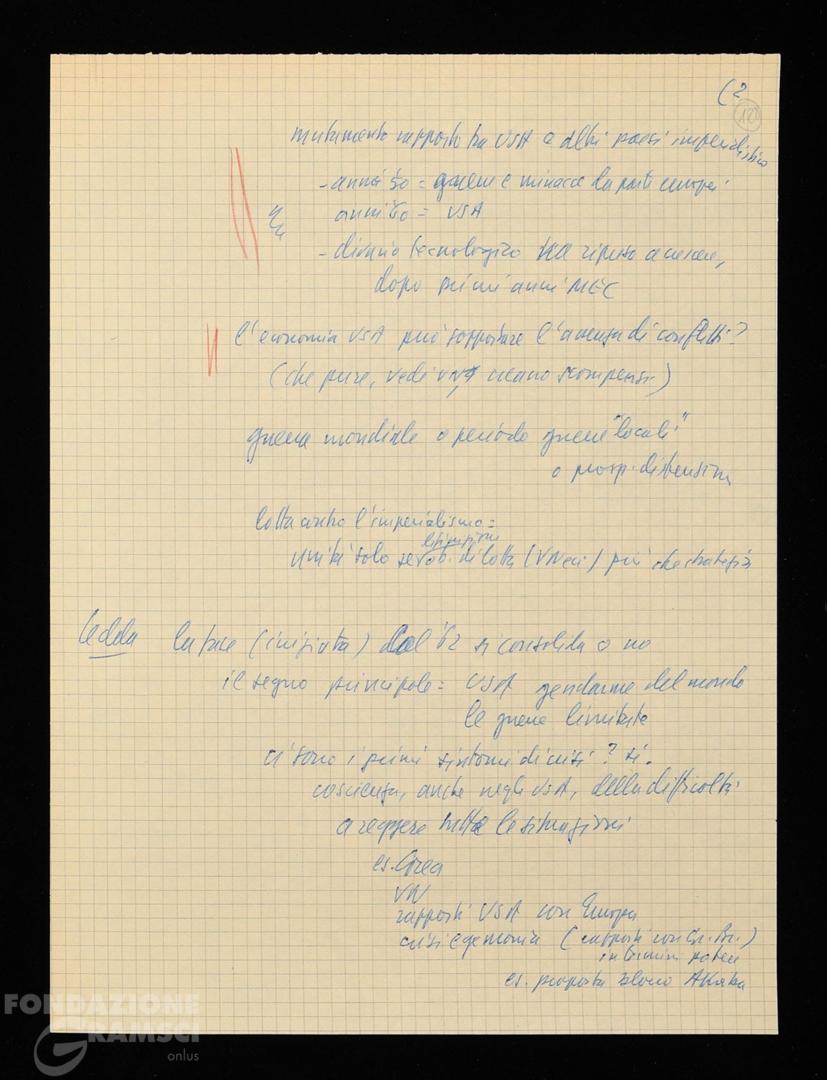 (2
12
mutamento rapporto tra USA e altri paesi imperialistici
- anni 50 = guerre e minacce da parti europei
anni 60 = USA
- divario tecnologico ha ripreso a crescere,
dopo primi anni MEC
l'economia USA può sopportare l'assenza di conflitti?
(che pure, vedi VN, creano scompensi)
guerra mondiale o periodo guerre "locali"
o prosp. distensione
lotta contro l'imperialismo =
unità solo se ob. di lotta (VN ecc.) più che strategia
Ledda la fase (iniziata) dal '62 si consolida o no
il segno principale = USA gendarme del mondo
le guerre limitate
ci sono i primi sintomi di crisi? si.
coscienza, anche negli USA, della difficoltà
a reggere tutte le situazioni
es. Corea
VN
rapporti USA con Europa
crisi egemonia (rapporti con Gr. Br.)
in termini
es. proposta blocco Akaba
FONDAZIONE
GRAMSCI
onlus